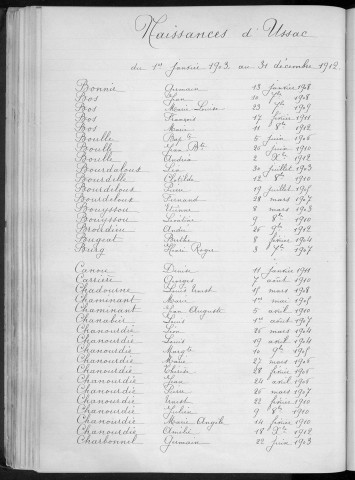 Naissances d'Ussac
du 1er Janvier 1903 au 31 décembre 1912
Bonnie Germain 13 janvier 1908
Bos Jean 10 1908
Bos Marie Louise 23 1909
Bos François 17 février 1911
Bos Marie 11 8bre 1912
Boulle Bapte 5 juin
Boully Jean Bte 20 juin 1910
Boulle Andréa 2 Xbre 1912
Bourdaloux Léa 30 juillet 1903
Bourdelle Clotilde 12 8bre 1910
Bourdeloux Pierre 19 juillet
Bourdeloux Fernand 28 mars 1907
Bouyssou Etienne 8 mars 1903
Bouyssou Léontine 9 8bre 1910
Broudin André 26 9bre 1912
Bugeat Berthe 8 février 1904
Burg Henri Roger 3 7bre 1907
Canou Denise 11 janvier 1911
Carrière Georges 7 août 1910
Chadourne Louis Ernest 15 mars 1908
Chaminant Marie 1er mai
Chaminant Jean Auguste 5 avril 1910
Chanabié Louis 1er août 1907
Chanourdie Léon 26 mars 1904
Chanourdie Louis 19 avril 1904
Chanourdie Margte 10 9bre
Chanourdie Marie 27 mars
Chanourdie 28 février
Chanourdie Jean 24 avril
Chanourdie Pierre 26 mars 1907
Chanourdie Ernest 22 février 1910
Chanourdie Julien 9 8bre 1910
Chanourdie Marie Angèle 14 février 1910
Chanourdie Amélie 18 Xbre 1912
Charbonnel Germain 22 juin 1903